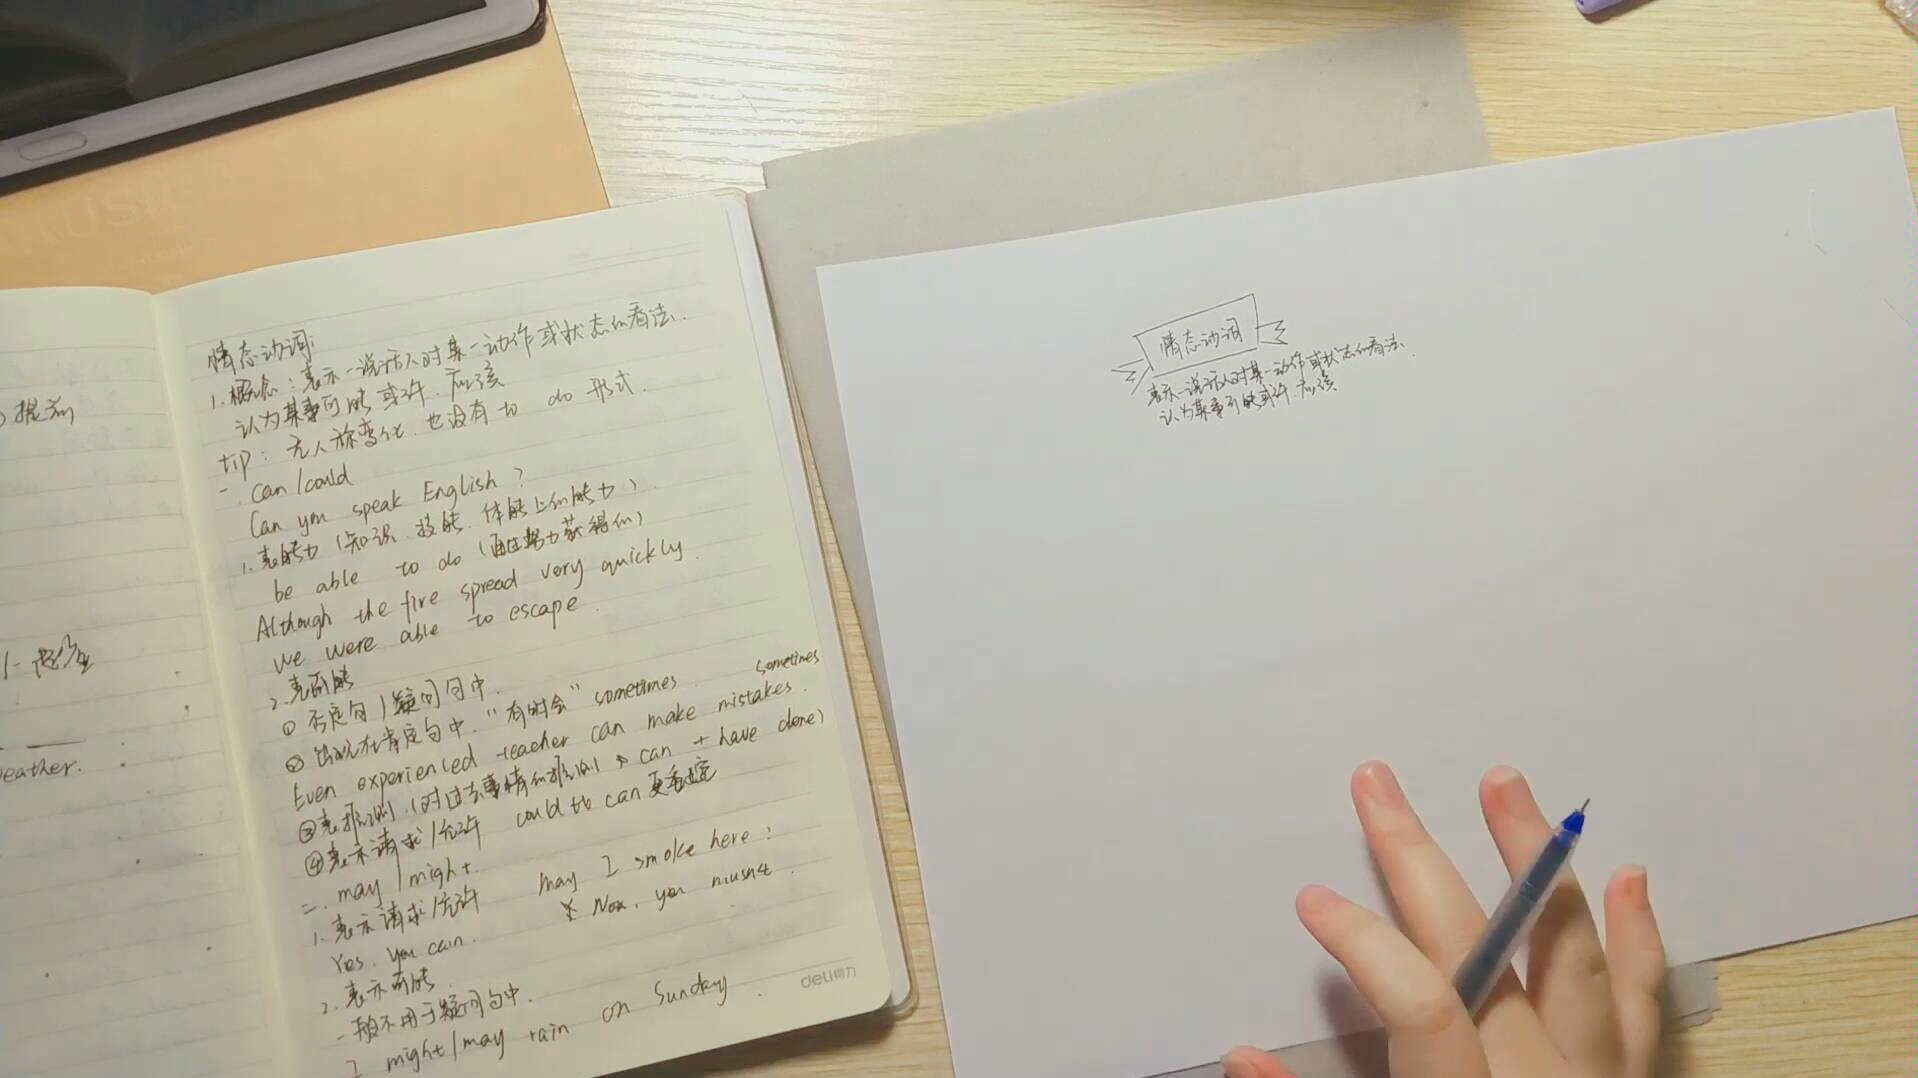 提前
1-
eather.
情态动词:
1.概念:表示一说话人对某一动作或状态的看法.
认为某事可能或许.应该
tip: 无人称变化.也没有 to do 形式.
一. Can/could
Can you speak English?
1.表能力(知识.技能.体能上的能力).
be able to do (通过努力获得的)
Although the fire spread very quickly.
we were able to escape.
2.表可能
① 否定句/疑问句中.
② 出现在肯定句中."有时会" sometimes. sometimes
Even experienced teacher can make mistakes.
③表推测.(对过去事情的推测 can + have done)
④表示请求/允许 could 比 can 更委婉
二. may/might.
1.表示请求/允许 may I smoke here?
Yes. you can. No, you musnt.
2.表示可能.
一般不用于疑问句中.
I might/may rain on Sunday.
deli得力
情态动词
表示一说话人对某一动作或状态的看法.
认为某事可能或许.应该